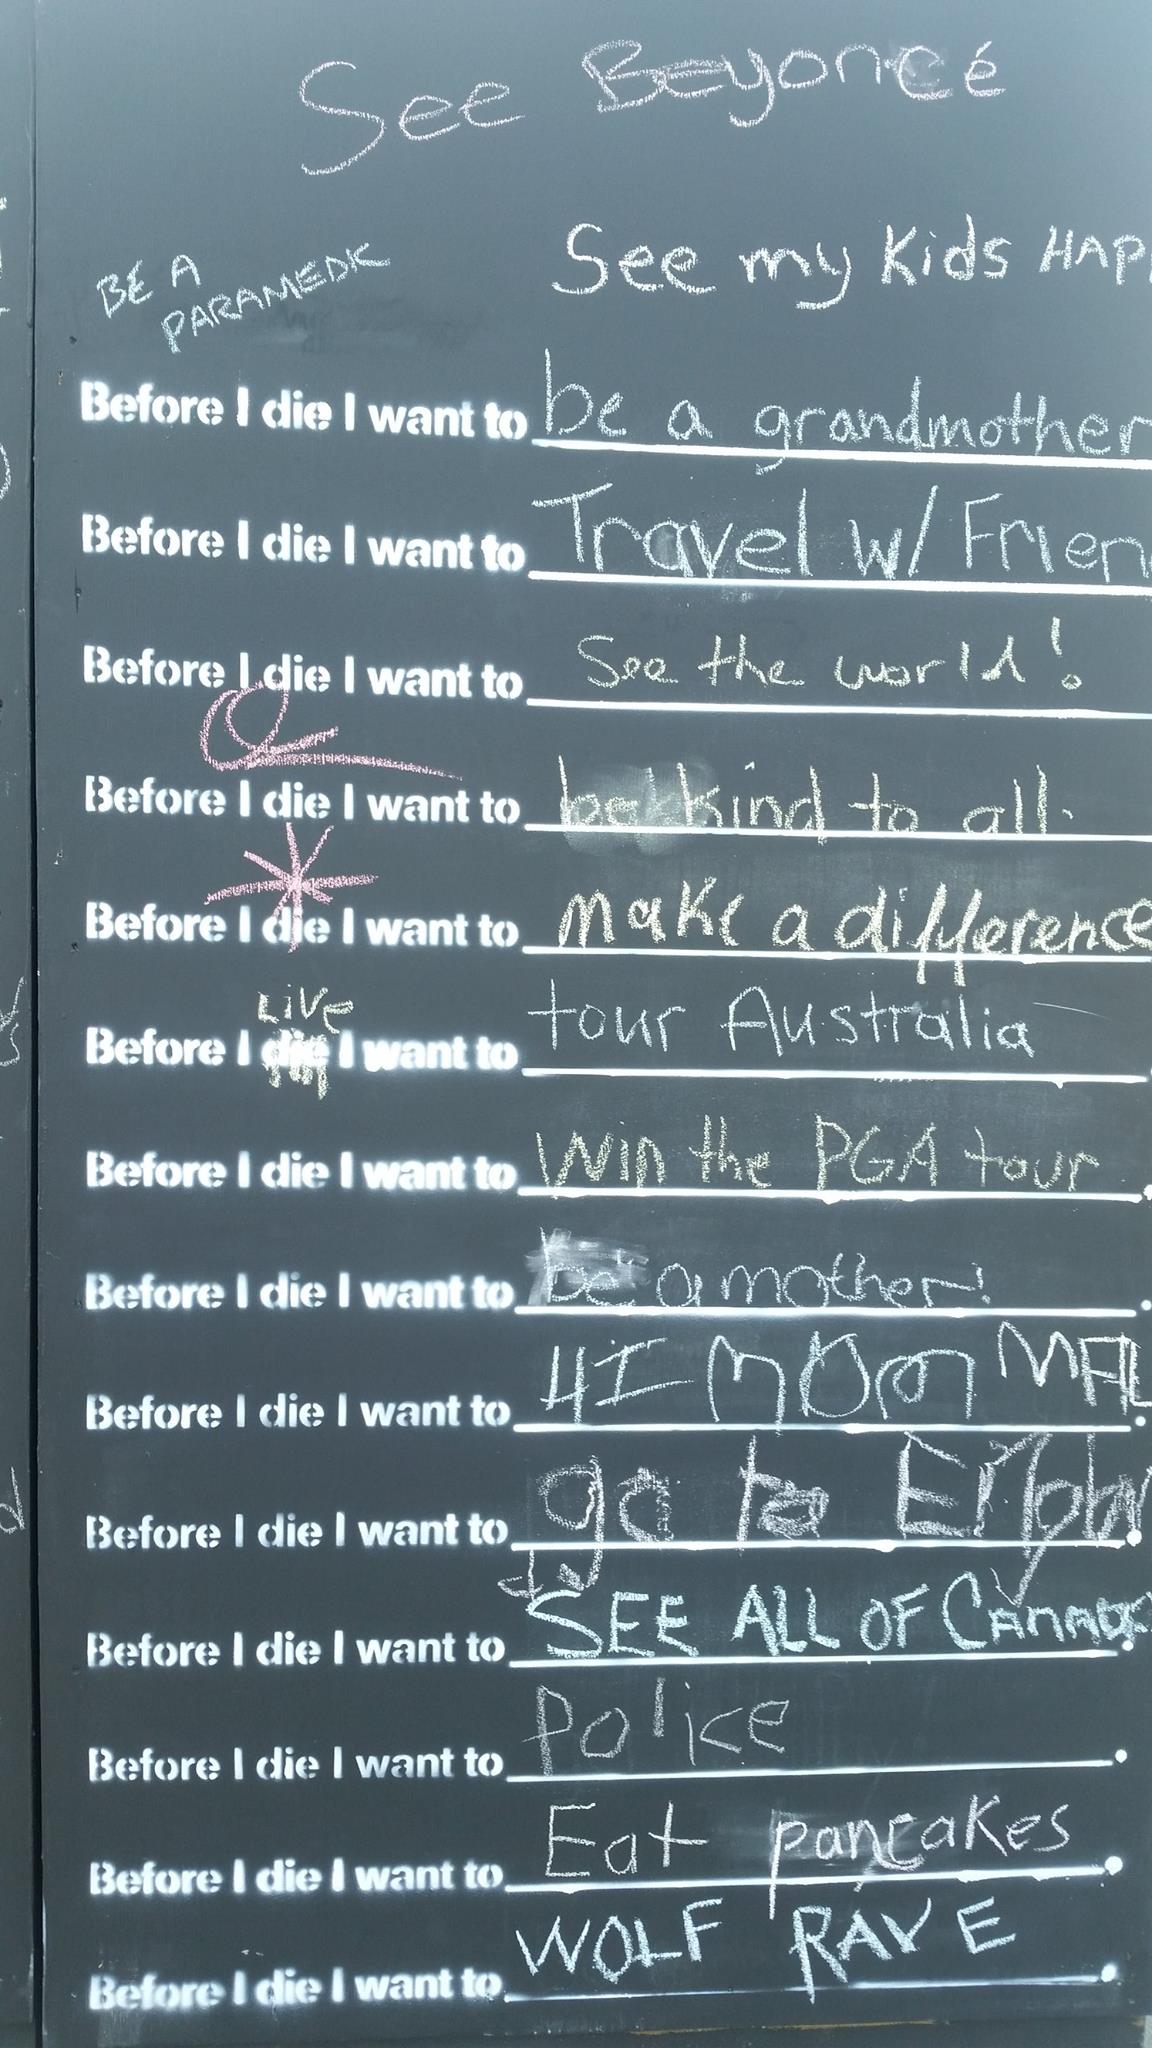 See Beyoncé
See my Kids HAP
BE A
PARAMEDIC
Before I die I want to be a grandmother
Before I die I want to Travel w/ Frien
Before I die I want to See the world!
Before I die I want to be kind to all.
Before I die I want to make a difference
LiVe
Before I die I want to tour Australia
Before I die I want to Win the PGA tour.
Before I die I want to be a mother!.
Before I die I want to
Before I die I want to go to
Before I die I want to SEE ALL OF CANADA.
Before I die I want to Police.
Before I die I want to Eat pancakes.
Before I die I want to WOLF RAVE.